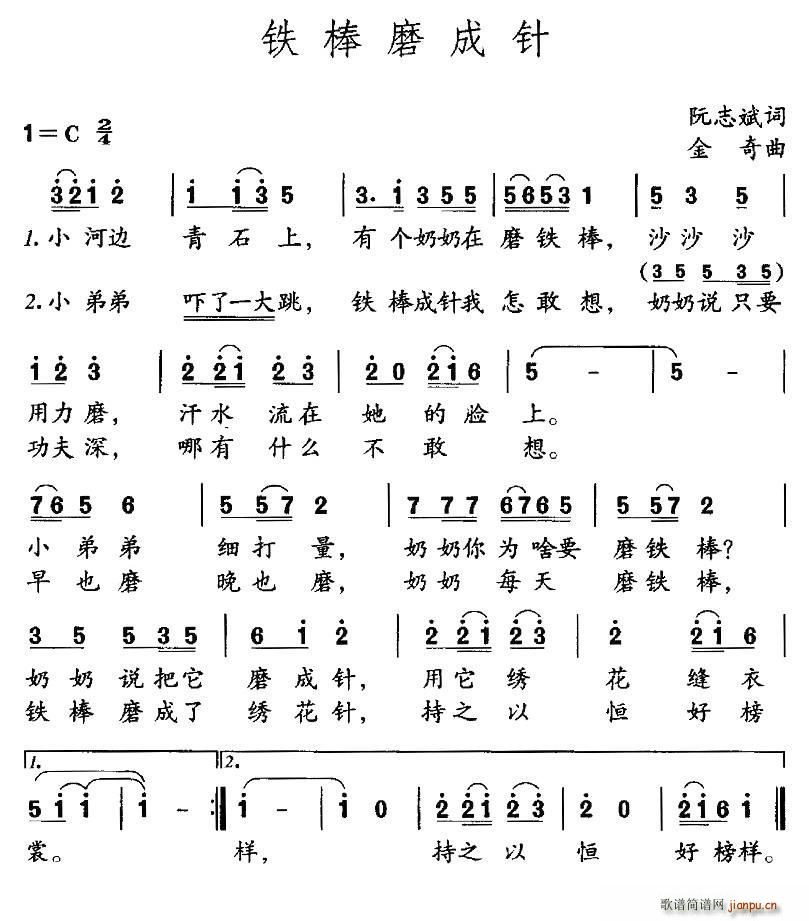 铁棒磨成针
1=C 2/4
阮志斌词
金奇曲
3 2 1 2 | 1 1 3 5 | 3. 1 3 5 5 5 | 5 6 5 3 1 | 5 3 5
1.小河边 青石上, 有个奶奶在磨铁棒, 沙沙沙
(3 5 5 3 5)
2.小弟弟 吓了一大跳, 铁棒成针我怎敢想, 奶奶说只要
1 2 3 | 2 2 1 2 3 | 2 0 2 1 6 | 5 - | 5 - |
用力磨, 汗水流在她的脸上。
功夫深, 哪有什么不敢想。
7 6 5 6 | 5 5 7 2 | 7 7 7 7 6 7 6 5 | 5 5 7 2
小弟弟 细打量, 奶奶你为啥要磨铁棒?
早也磨 晚也磨, 奶奶每天磨铁棒,
3 5 5 3 5 | 6 1 2 | 2 2 1 2 3 | 2 2 1 6
奶奶说把它磨成针, 用它绣花缝衣
铁棒磨成了绣花针, 持之以恒好榜
1. 2.
5 1 1 | 1 - :| 1 - | 1 0 | 2 2 1 2 3 | 2 0 | 2 1 6 1 ‖
裳。 样, 持之以恒好榜样。
歌谱简谱网
jianpu.cn